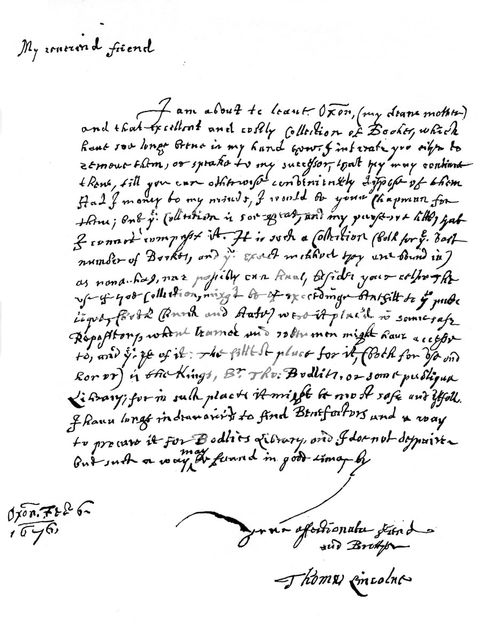 My reverend friend
I am about to leave Oxōn, (my deare mother)
and that excellent and costly Collection of Bookes, which
have soe longe beene in my hand now I intreate you eyther to
remove them, or speake to my successor, that they may continue
there, till you can otherwise conveniently dispose of them
Had I money to my minde, I would be your Chapman for
them; but yr Collection is soe great, and my purse soe litle, yt
I cannot compasse it. It is such a Collection (both for ye vast
number of Bookes, and ye exact method they are bound in)
as none has, nor possibly can have, besides your selfe. The
use of that Collection, might be of exceedinge benefitt to ye publique
(both Church and State) were it plac'd in some safe
Repository, where learned and sober men might have accesse
to, and ye use of it: The fittest place for it, (both for use and
honor) is the Kings, Sr. Tho: Bodlies, or some publique
Library; for in such places it might be most safe and usefull.
I have longe indeavoured to find Benefactors and a way
to procure it for Bodlies Library, and I doe not dispaire
but such a way may be found in good time by
Oxōn. Feb. 6
1676.
Your affectionate friend
and Brother
Thomas Lincolne